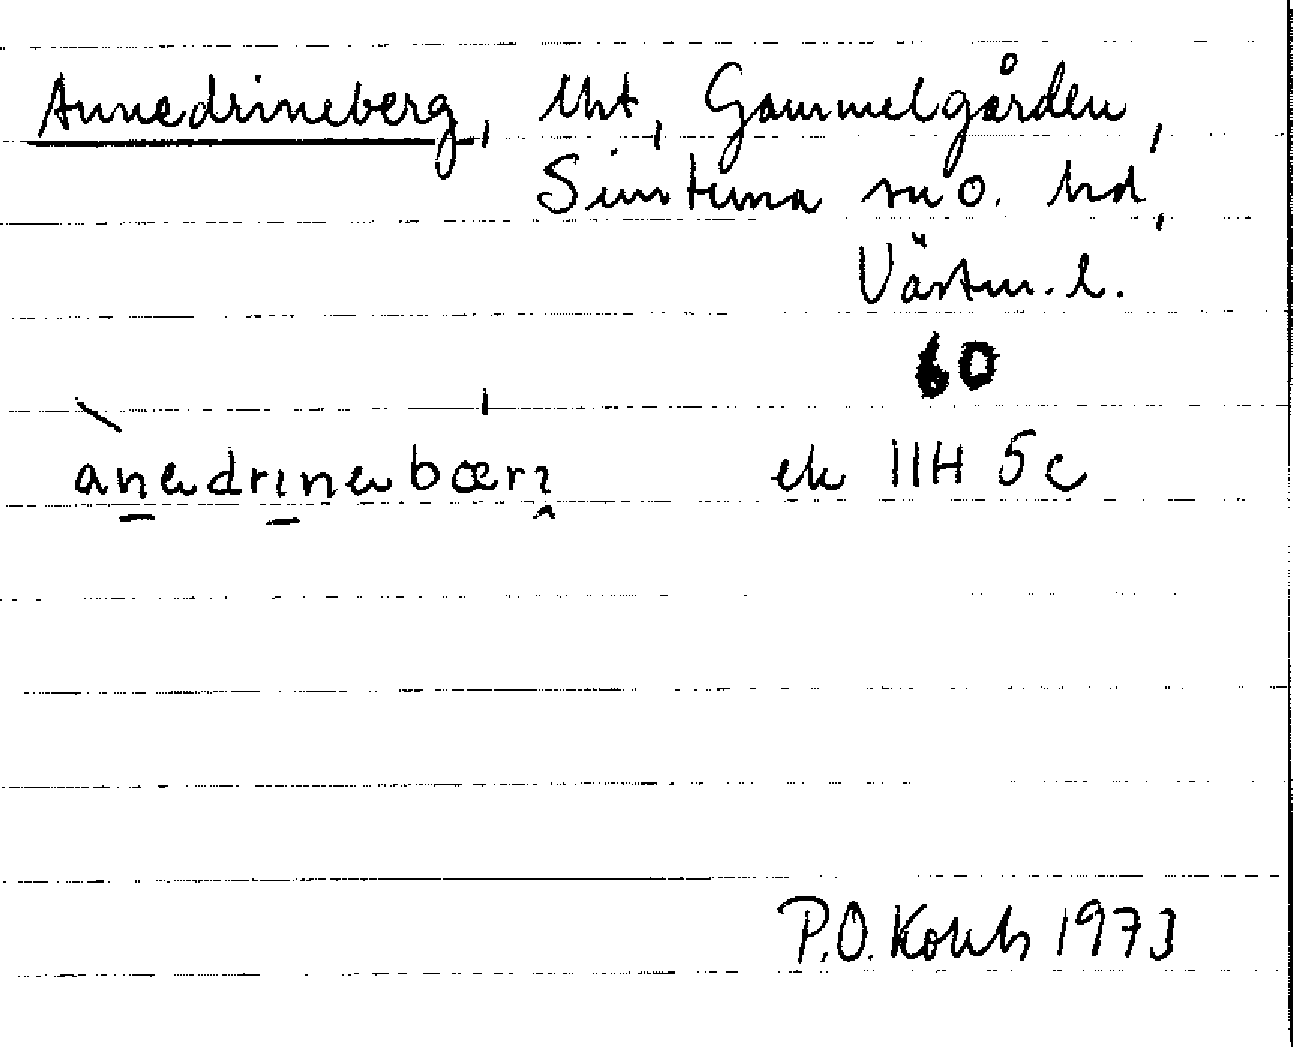 Annedrineberg, lht, Gammelgården,
Simtuna sn o. hd,
Västm. l.
60
anedrinebærj ek 11H 5c
P.O. 1973